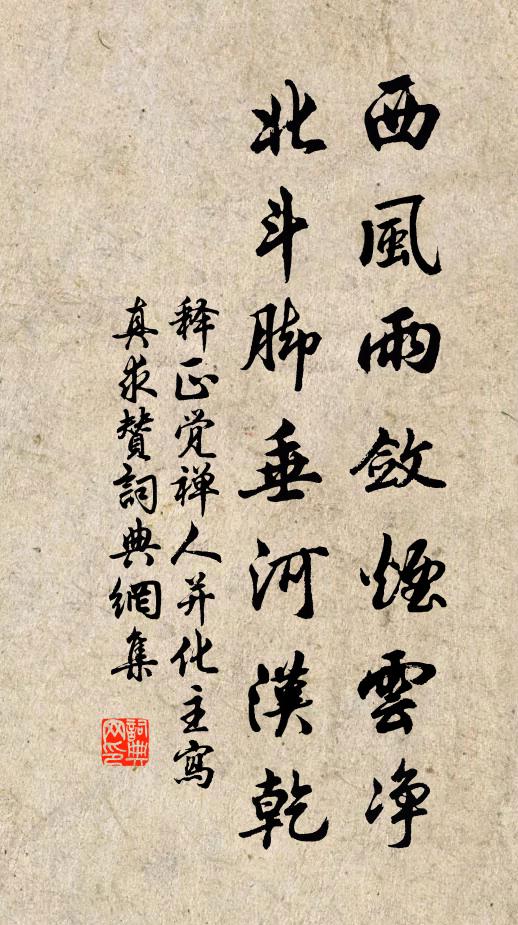 西風雨斂煙雲净
北斗脚垂河漢乾
释正觉禅人并化主寫
真求赞詞典網集
詞典网印